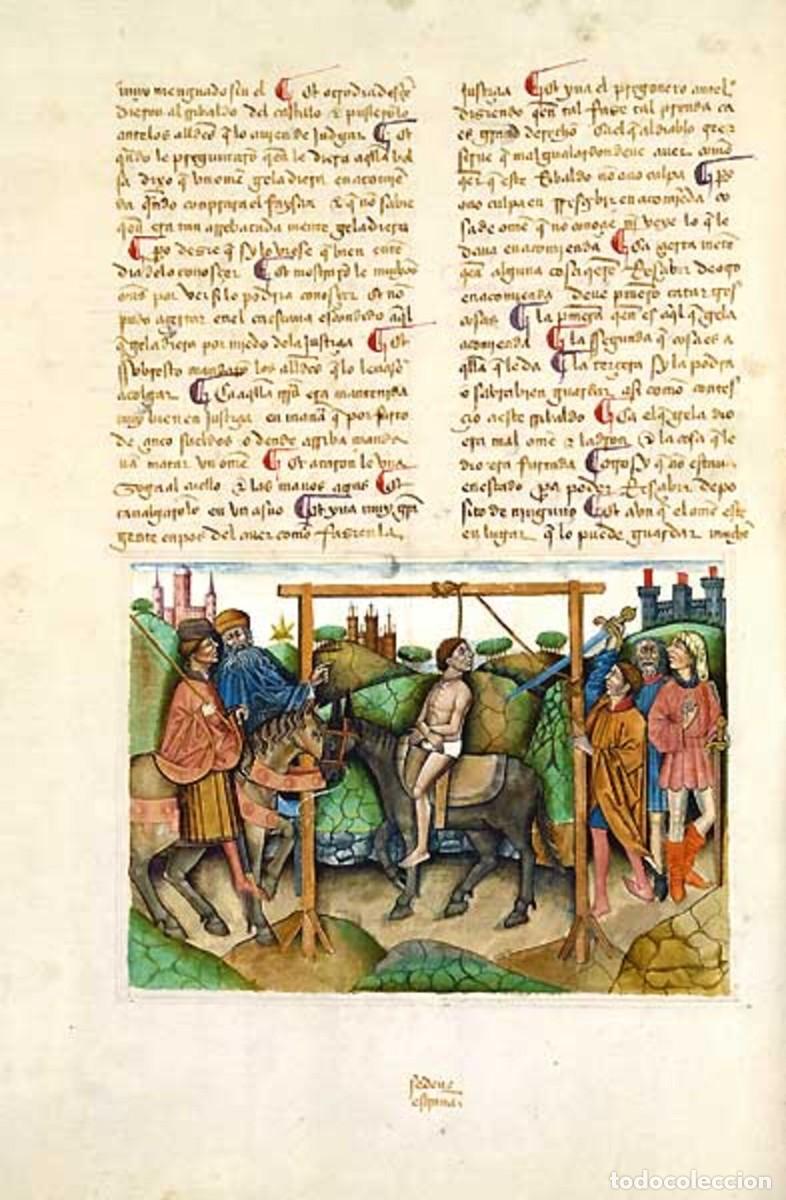 muy menguado sin el ¶ Et otro dia desçe
dieron al ribaldo del castillo & pusierõlo
antelos alldes q̃ lo auien de judgar ¶ Et
q̃ndo le preguntarõ quiẽ le diera aq̃lla bol
sa dixo q̃ vn omẽ gela diera en acomiẽ
da q̃ndo conprara el faysan & q̃ no sabie
quiẽ era tan arrebatada mente gela diera
¶ pero desie q̃ sy lo viese q̃ bien entẽ
dia delo conosçer ¶ Et mostrarõ le muchos
oms por ver si lo podria conosçer Et nõ
pudo açertar en el ca estaua escondido aq̃l
q̃ gela diera por miedo dela justiçia ¶ Et
sobresto mandarõ los alldes q̃ lo leuasẽ
a colgar ¶ Ca aq̃lla trra era mantenida
muy bien en justiçia en manã q̃ por furto
de çinco sueldos o dende arriba manda
uã matar vn omẽ ¶ Et ataron le vna
soga al cuello & las manos atras ¶ Et
caualgarõlo en vn asno ¶ Et yua muy grã
gente en pos del a ver como fasien la
justiçia ¶ Et yua el pregonero antel
disiendo quiẽ tal fase tal prenda ca
es grand derecho q̃ el q̃ al diablo
sigue q̃ mal gualardon deue auer comõ
q̃er q̃ este Ribaldo no ouo culpa ¶ po
ouo culpa en rresçebir en acomiẽda co
sa de omẽ q̃ no conosçe nj veye lo q̃ le
daua en acomienda ¶ Ca çierta mẽte
quiẽ alguna cosa q̃ere Resçebir de otro
en acomienda deue primero catar tres
cosas ¶ la primera quiẽ es aq̃l q̃ gela
acomienda ¶ la segunda q̃ cosa es a
q̃lla q̃ le da ¶ la terçera sy la podra
o sabra bien guardar asi como contes
çio a este ribaldo ¶ Ca el q̃ gela dio
era mal omẽ & ladron & la cosa q̃ le
dio era furtada ¶ otrosy q̃ nõ estaua
en estado para poder Resçebir depo
sito de ninguno ¶ Et avn q̃ el omẽ este
en lugar q̃ lo puede guardar mucho
se deue
escusar
todocoleccion